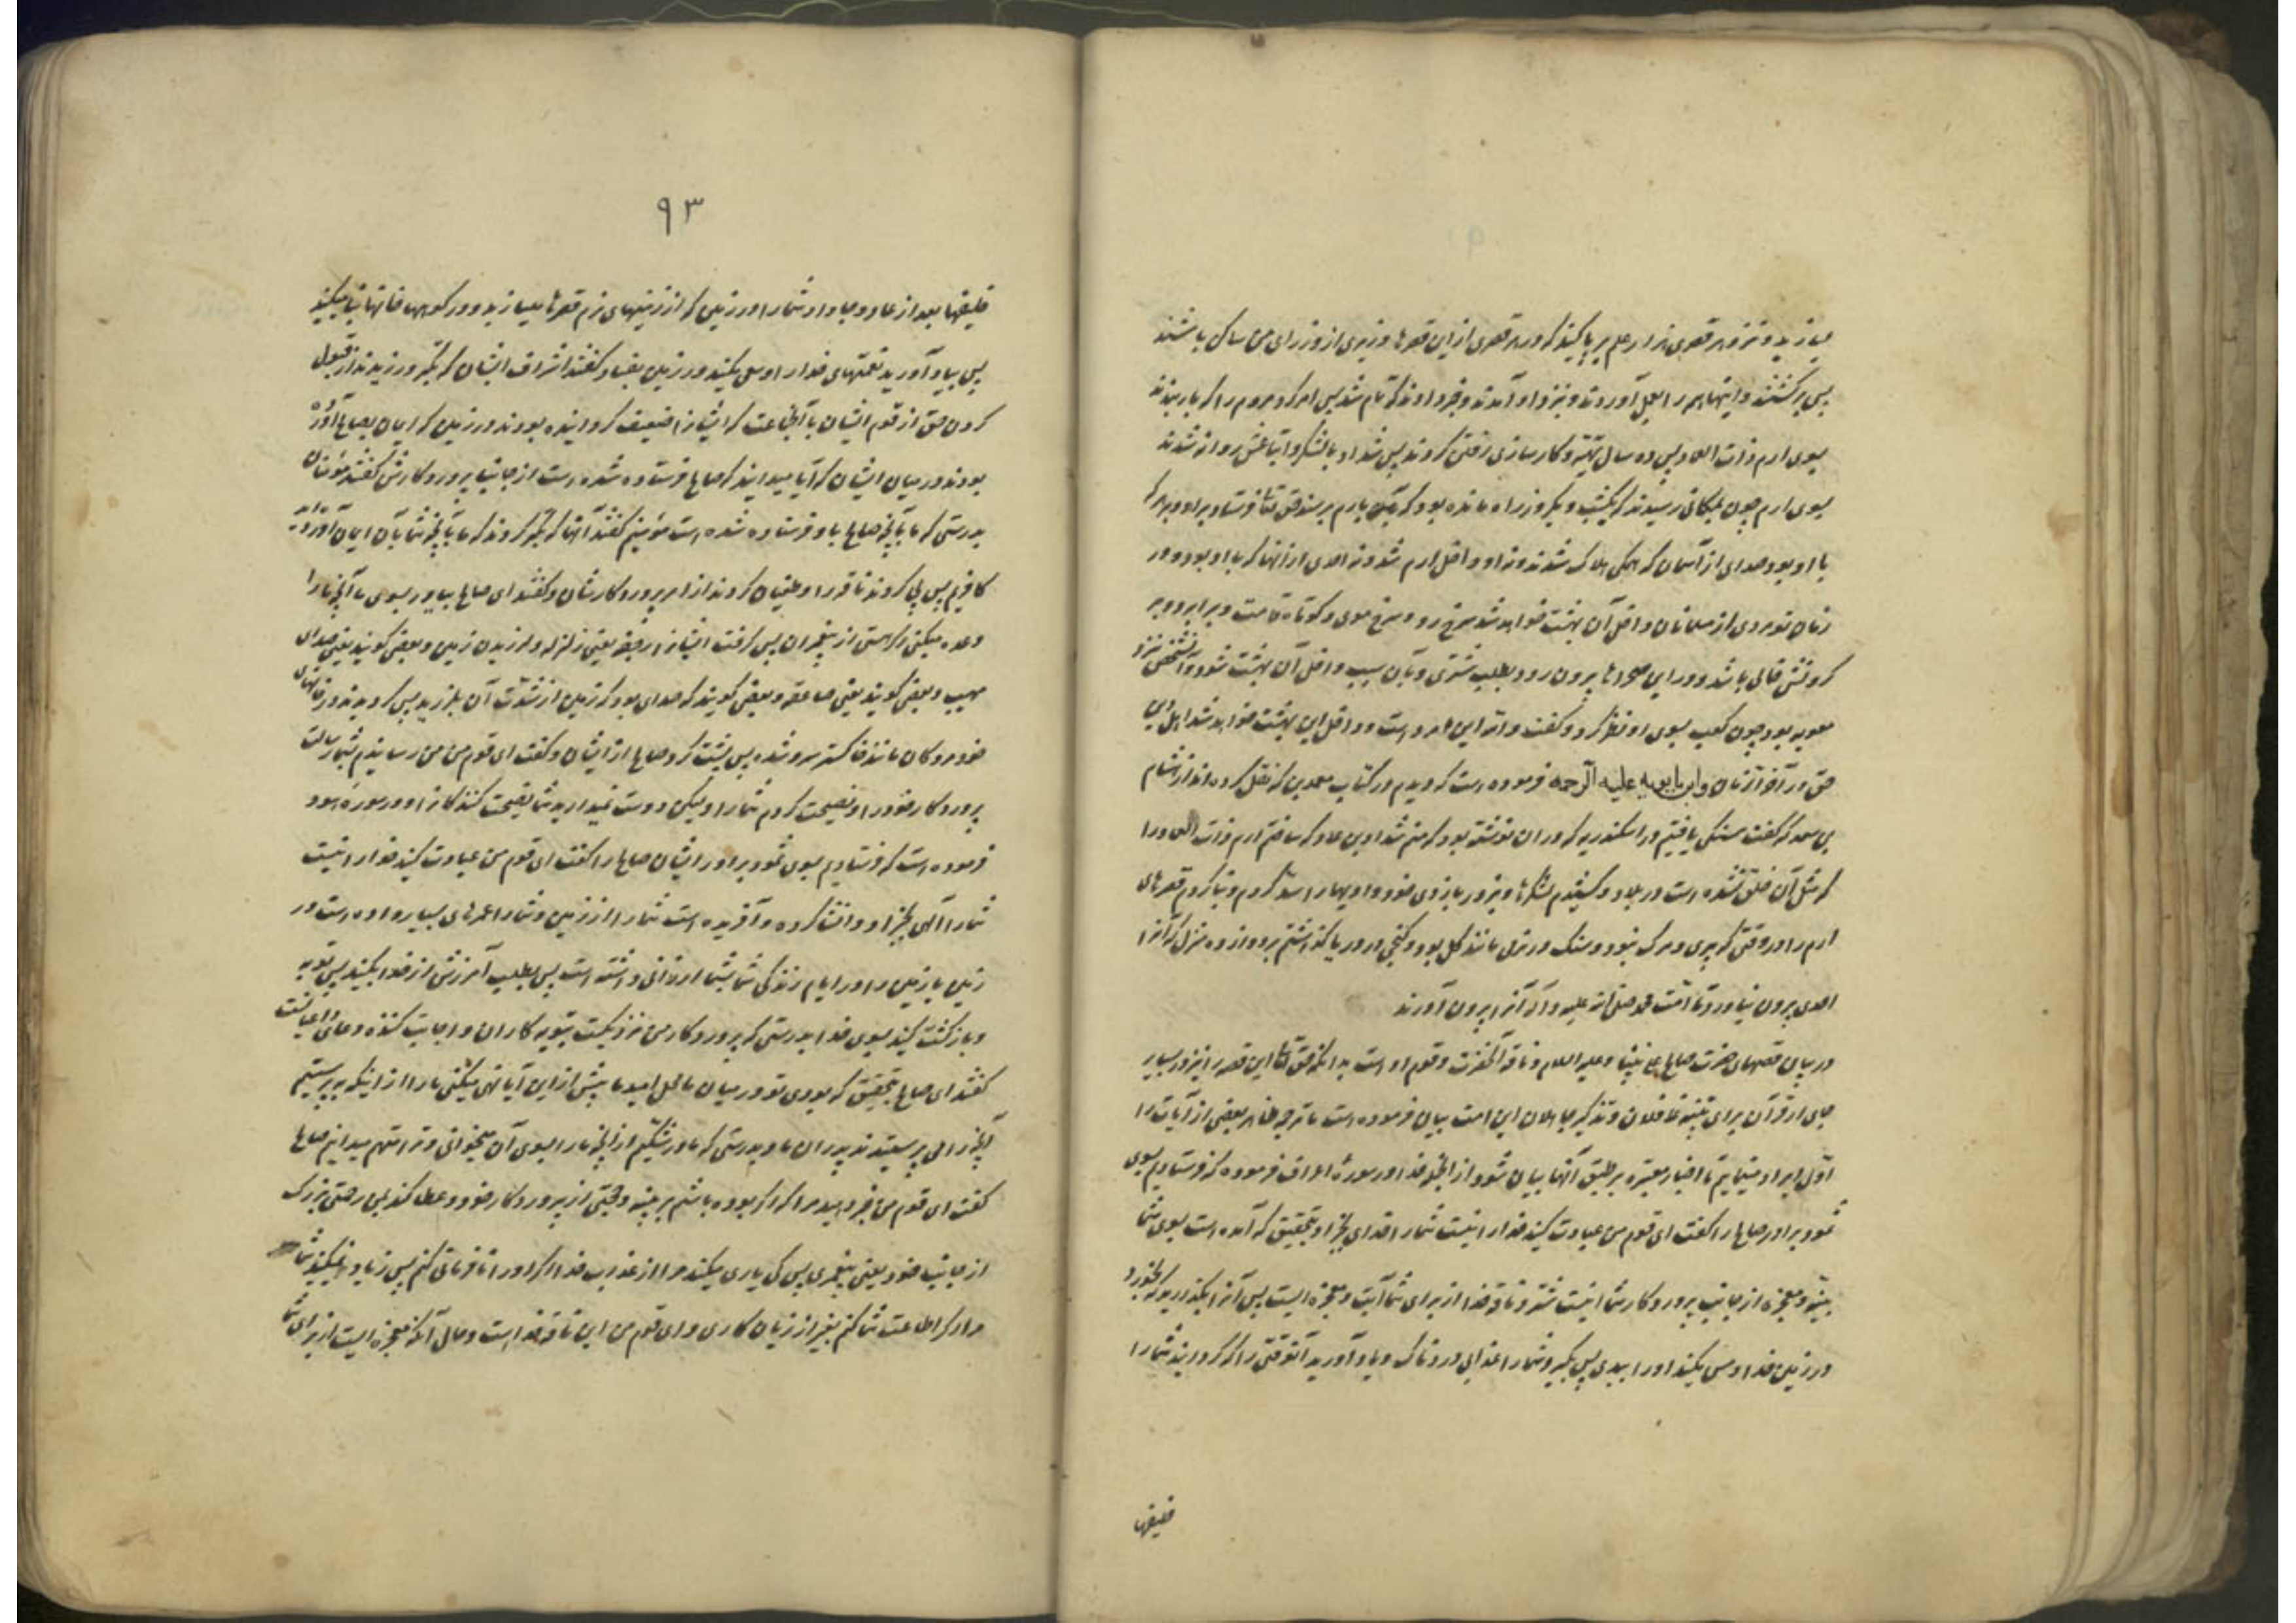 میازید و نزد هر قصری هزار علم بر پا کنید که در هر قصری از این قصرها وزیری از وزرای من ساکن باشند
پس برگشتند و اینها همه را بعمل آوردند و نزد او آمدند و خبر دادند که تمام شد پس امر کرد مردم را که بار ببندند
بسوی ارم ذات العماد پس ده سال تهیه و کارسازی رفتن کردند پس شداد با لشکر و اتباعش روانه شدند
بسوی ارم چون بمکانی رسیدند که یکشب و یکروز راه مانده بود که بارم برسند حق تعالی فرستاد بر او و بر هر که
با او بود صدای از آسمان که همگی هلاک شدند و نه او داخل ارم شد و نه احدی از آنها که با او بود و در
زمان تو مردی از مسلمانان داخل آن بهشت خواهد شد سرخ رو و سرخ موی و کوتاه قامت و بر ابرو و بر
گردنش خالی باشد و در این صحراها بیرون رود بطلب شتری و بآن سبب داخل آن بهشت شود و آنشخص نزد
معویه بود چون کعب بسوی او نظر کرد و گفت والله این مرد است و داخل این بهشت خواهد شد اهل دین
حق در آخر الزمان و ابن بابویه علیه الرحمه فرموده است که دیدم در کتاب معمرین که نقل کرده اند از هشام
بن سعد که گفت سنگی یافتیم در اسکندریه که در ان نوشته بود که منم شداد بن عاد که ساختم ارم ذات العماد را
که مثل آن خلق نشده است در بلاد و کشیدم لشکرها و بزور بازوی خود وادیها را سد کردم و بنا کردم قصرهای
ارم را در وقتی که پیری و مرگ نبود و سنگ در نرمی مانند گل بود و گنجی در دریا گذاشتم بر دوازده منزل که آنرا
احدی بیرون نیاورد تا امت محمد صلی الله علیه و آله آنرا بیرون آورند
در بیان قصهای حضرت صالح علی نبینا و علیه السلام و ناقه آنحضرت و قوم او است بدانکه حق تعالی این قصه را نیز در بسیار
جای از قرآن برای تنبیه غافلان و تذکیر جاهلان این امت بیان فرموده است ما ترجمه ظاهر بعضی از آیات را
اول ایراد مینمائیم تا اخبار معتبره بر طبق آنها بیان شود از انجمله خدا در سوره اعراف فرموده که فرستادیم بسوی
ثمود برادر صالح را گفت ای قوم من عبادت کنید خدا را نیست شما را خدای بجز او بتحقیق که آمده است بسوی شما
بینه و معجزه از جانب پروردگار شما اینست شتر و ناقه خدا از برای شما آیت و معجزه ایست پس آنرا بگذارید که بخورد
در زمین خدا و مس مکنید او را ببدی پس بگیرد شما را عذابی دردناک و یاد آورید آنوقتی را که گردانید شما را
خلیفها
۹۳
خلیفها بعد از عاد و جا داد شما را در زمین که از زمینهای نرم قصرها میسازید و در کوهها خانها بنا میکنید
پس بیاد آورید نعمتهای خدا را و سعی مکنید در زمین بفساد گفتند اشراف ایشان که تکبر ورزیدند از قبول
کردن حق از قوم ایشان با آنجماعت که ایشان را ضعیف گردانیده بودند در زمین که ایمان بصالح آورده
بودند در میان ایشان که آیا میدانید که صالح فرستاده شده است از جانب پروردگارش گفتند مؤمنان
بدرستی که ما بآنچه صالح باو فرستاده شده است مؤمنیم گفتند آنها که تکبر کردند که ما بآنچه شما بآن ایمان آورده اید
کافریم پس پی کردند ناقه را و طغیان کردند از امر پروردگارشان و گفتند ای صالح بیاور بسوی ما آنچه ما را
وعده میکنی اگر هستی از پیغمبران پس گرفت ایشان را رجفه یعنی زلزله و لرزیدن زمین و بعضی گویند یعنی صدای
مهیب و بعضی گویند یعنی صاعقه و بعضی گویند که صدای بود که زمین از شدت آن بلرزید پس گردیدند در خانهای
خود مردگان مانند خاکستر سرد شده پس پشت کرد صالح از ایشان و گفت ای قوم من من رسانیدم بشما رسالت
پروردگار خود را و نصیحت کردم شما را و لیکن دوست نمیدارید شما نصیحت کنندگان را و در سوره هود
فرموده است که فرستادیم بسوی ثمود برادر ایشان صالح را گفت ای قوم من عبادت کنید خدا را نیست
شما را الهی بجز او و انشا کرده و آفریده است شما را از زمین و شما را عمرهای بسیار داده است در
زمین یا زمین را در ایام زندگی شما بشما ارزانی داشته است پس بطلب آمرزش از خدا بکنید پس توبه
و بازگشت کنید بسوی خدا بدرستی که پروردگار من نزدیکست بتوبه کاران و اجابت کننده دعای داعیانست
گفتند ای صالح بتحقیق که بودی تو در میان ما محل امید ما پیش از این آیا نهی میکنی ما را از اینکه بپرستیم
آنچه را می پرستیدند پدران ما و بدرستی که ما در شکیم از آنچه ما را بسوی آن میخوانی و ترا متهم میدانیم صالح
گفت ای قوم من خبر دهید مرا که اگر بوده باشم بر بینه و حجتی از پروردگار خود و عطا کند بمن رحمتی بزرگ
از جانب خود یعنی پیغمبری پس کی یاری میکند مرا از عذاب خدا اگر او را نافرمانی کنم پس زیاد نمیکنید شما
مرا اگر اطاعت شما کنم بغیر از زیان کاری و ای قوم من این ناقه خدا است و حال آنکه معجزه ایست از برای شما